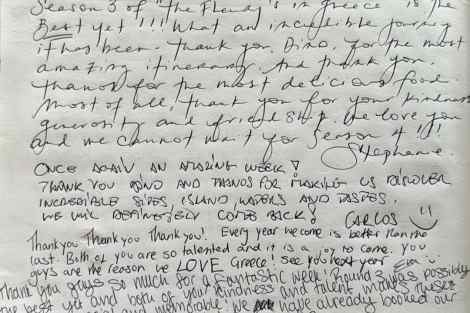 Season 3 of "The Fleudy's in Greece" is the
Best yet !!! What an incredible journey
it has been. Thank you, Dino, for the most
amazing itinerary. And thank you,
Thanos for the most delicious food.
Most of all, thank you for your kindness
generosity and friendship. We love you
and we cannot wait for Season 4 !!!
Stephanie.
ONCE AGAIN AN AMAZING WEEK !
THANK YOU DINO AND THANOS FOR MAKING US DISCOVER
INCREDIBLE SITES, ISLAND, WATERS AND TASTES.
WE WILL DEFINETELY COME BACK ! CARLOS
Thank you Thank you Thank you! Every year we come is better than the
last. Both of you are so talented and it is a joy to come. You
guys are the reason we LOVE Greece! See you next year
Thank you guys so much for a fantastic week! Round 3 was possibly
the best yet and both of your kindness and talent makes these
and memorable. We have already booked our